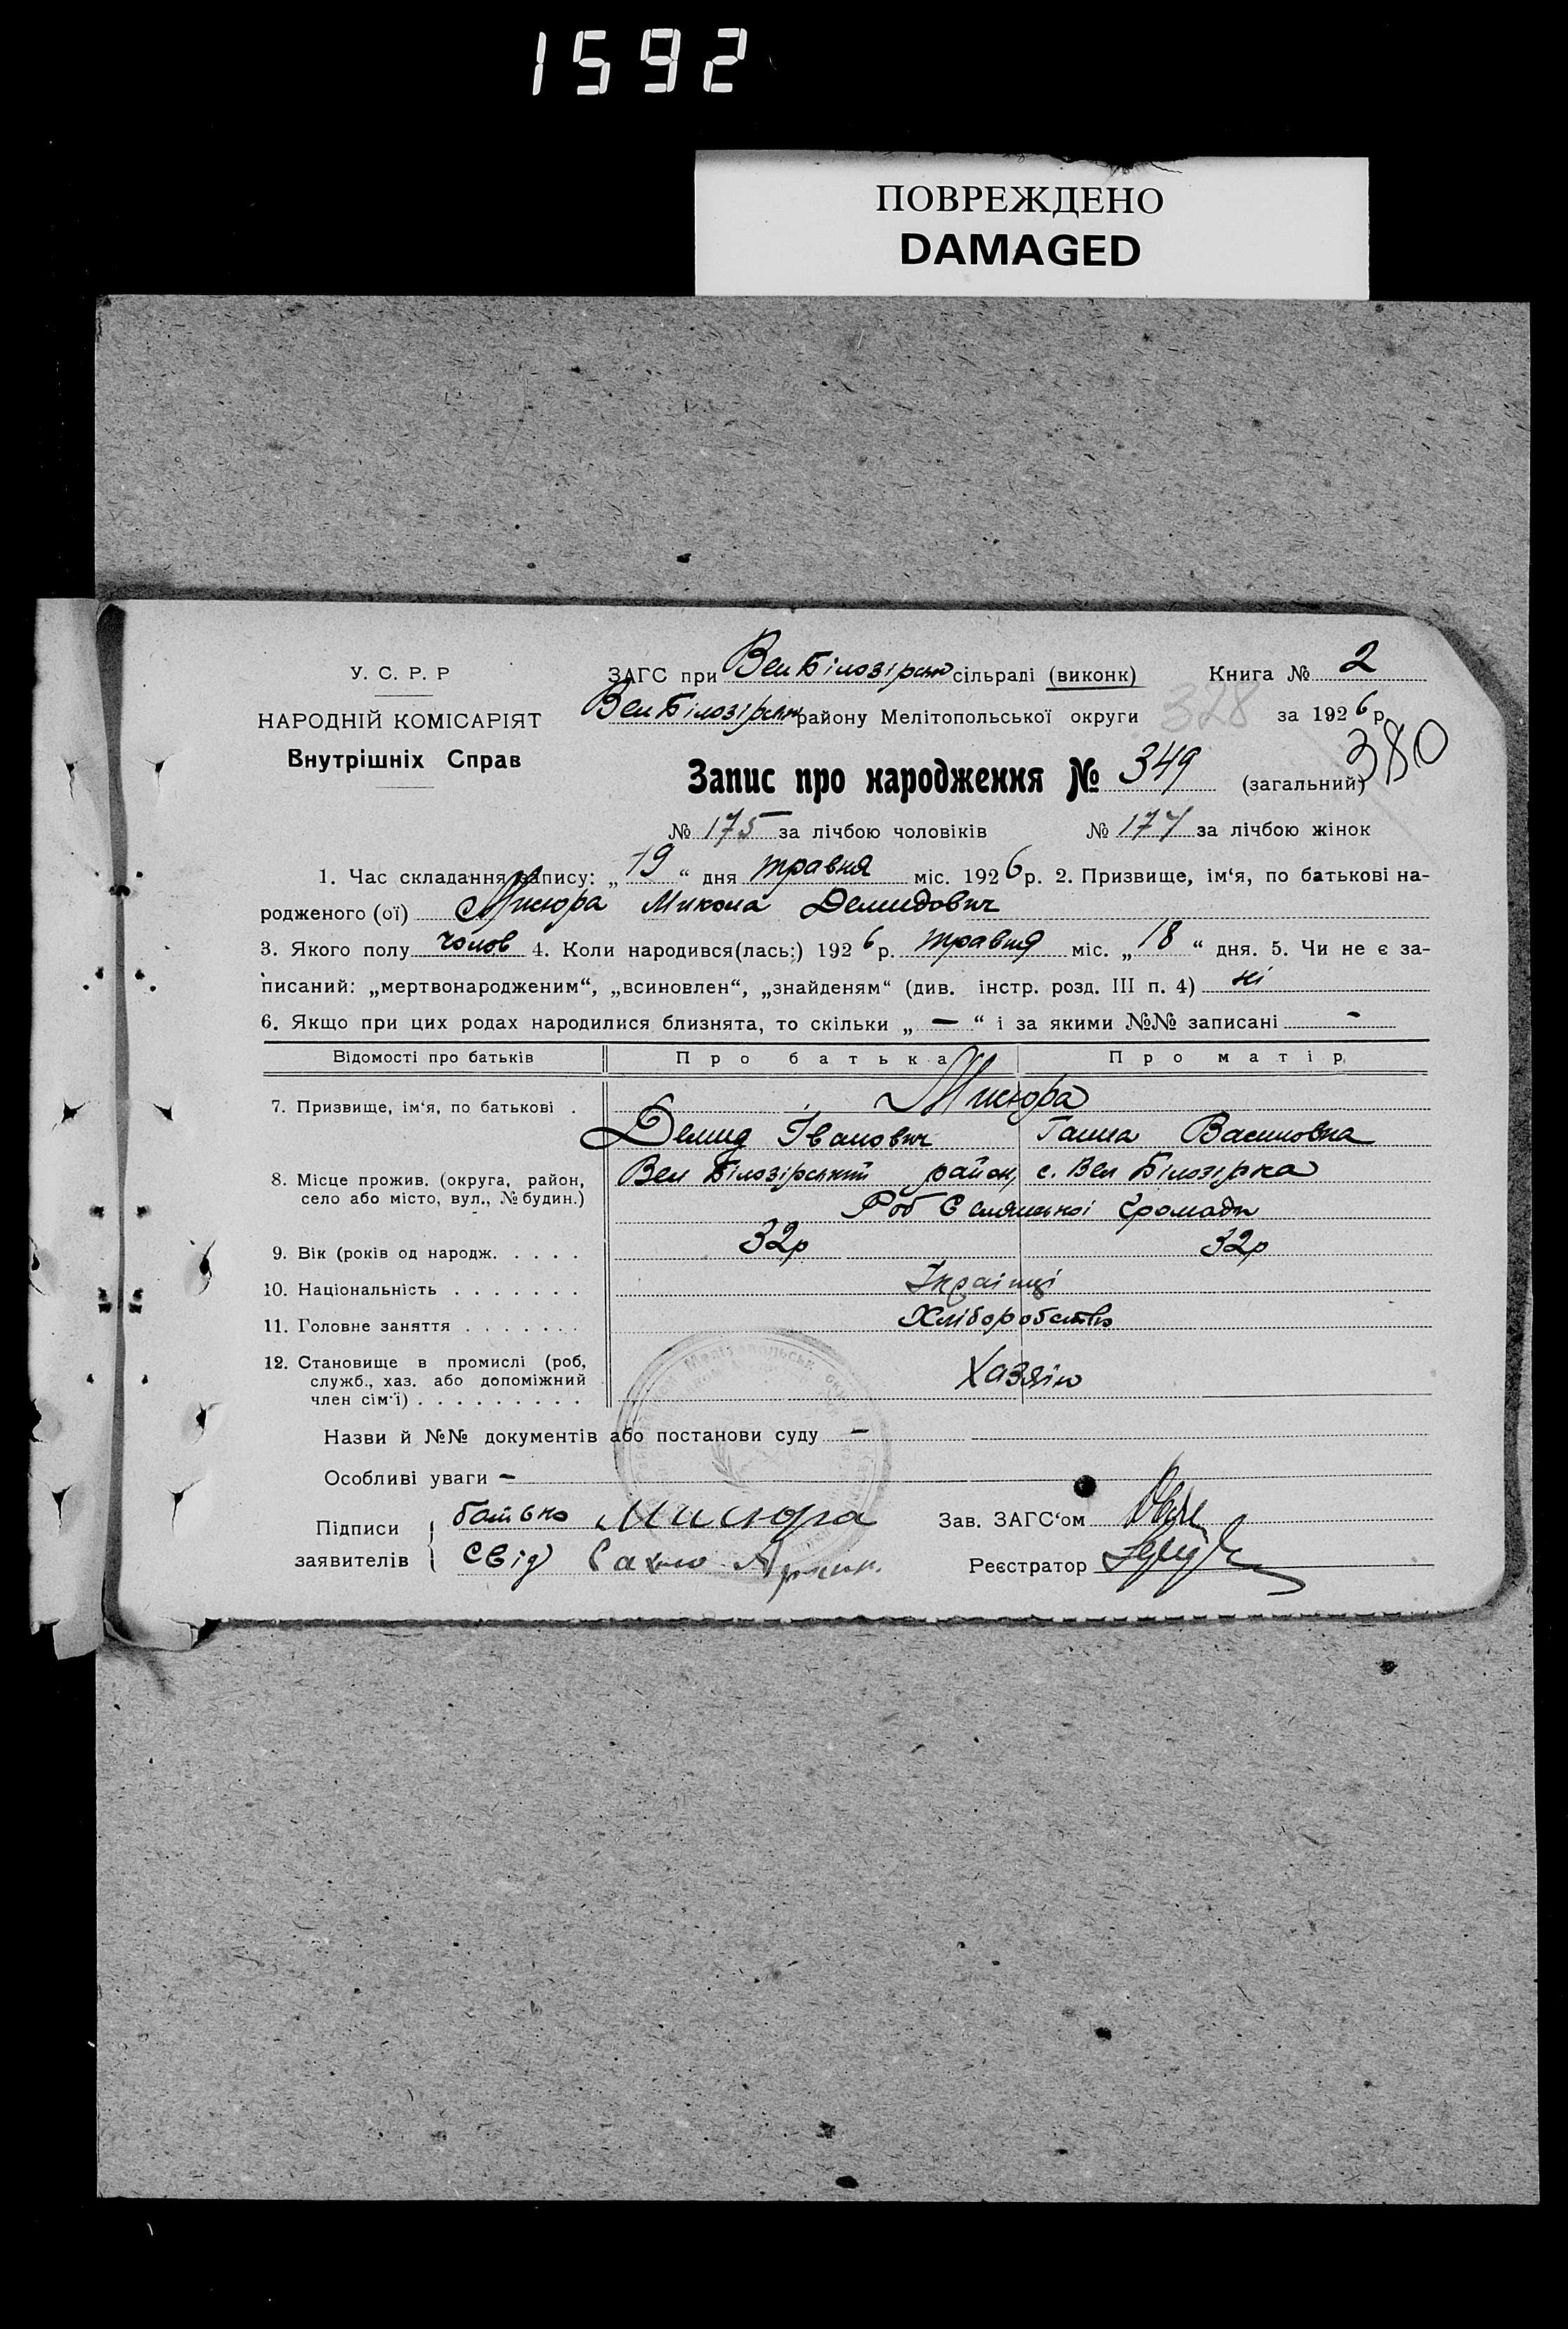 1592
ПОВРЕЖДЕНО
DAMAGED
У. С. Р. Р
НАРОДНІЙ КОМІСАРІЯТ
Внутрішніх Справ
ЗАГС при Вел Білозірськ сільраді (виконк) Книга № 2
Вел Білозірськ району Мелітопольської округи 328 за 1926 р.
380
Запис про народження № 349 (загальний)
№ 175 за лічбою чоловіків № 174 за лічбою жінок
1. Час складання запису: „19“ дня травня міс. 1926 р. 2. Призвище, ім‘я, по батькові на-
родженого (ої) Мисюра Микола Демидович
3. Якого полу чолов 4. Коли народився(лась:) 1926 р. травня міс. „18“ дня. 5. Чи не є за-
писаний: „мертвонародженим“, „всиновлен“, „знайденям“ (див. інстр. розд. III п. 4) ні
6. Якщо при цих родах народилися близнята, то скільки „ — “ і за якими №№ записані -
Відомості про батьків Про батька Про матір
7. Призвище, ім‘я, по батькові . Мисюра
Демид Іванович Ганна Василовна
8. Місце прожив. (округа, район, Вел Білозірський район, с. Вел Білозірка
село або місто, вул., № будин.) Роб Селянської громади
9. Вік (років од народж. . . . . 32р 32р
10. Національність . . . . . . . Українці
11. Головне заняття . . . . . . . Хліборобство
12. Становище в промислі (роб, Хазяїн
служб., хаз. або допоміжний
член сім‘ї) . . . . . . . . .
Назви й №№ документів або постанови суду —
Особливі уваги —
Підписи батько Мисюра Зав. ЗАГС‘ом
заявителів свід Реєстратор